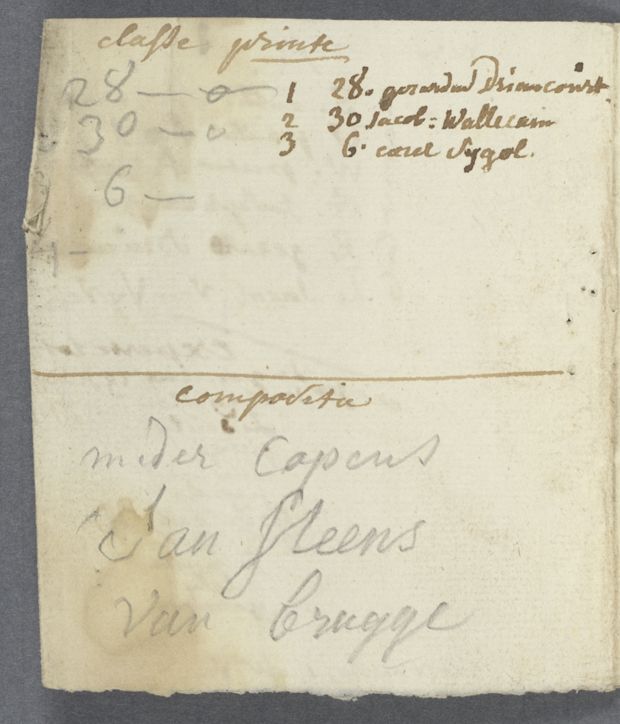 classe printe
28 — o — 1 28. gerardus Driancourt
30 — o 2 30 Jacob: Wallecam
3 6. carel Sygol.
6 —
composetu
meder Copens
Van Steens
Van brugge